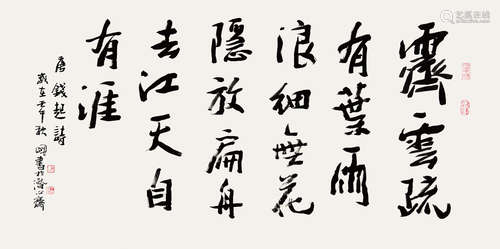 霽雲疏
有葉雨
浪細無花
隱放扁舟
去江天自
有涯
唐錢起詩
歲在壬午秋國書於